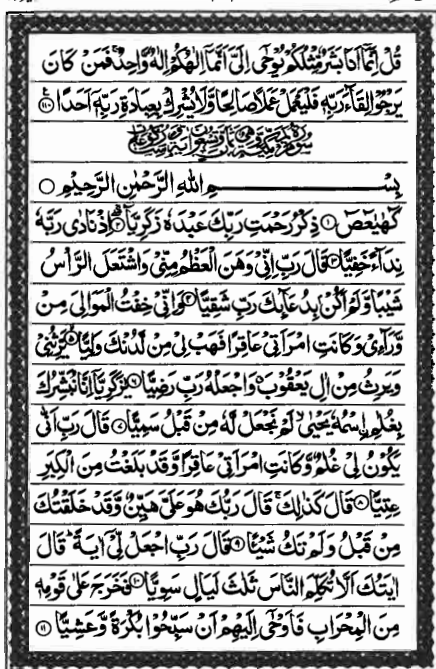 قُلْ اِنَّمَاۤ اَنَا بَشَرٌ مِّثْلُكُمْ يُوْحٰۤى اِلَىَّ اَنَّمَاۤ اِلٰهُكُمْ اِلٰهٌ وَّاحِدٌ ۚ فَمَنْ كَانَ
يَرْجُوْا لِقَآءَ رَبِّهٖ فَلْيَعْمَلْ عَمَلًا صَالِحًا وَّلَا يُشْرِكْ بِعِبَادَةِ رَبِّهٖۤ اَحَدًا ﴿۱۱۰﴾
بِسْمِ اللهِ الرَّحْمٰنِ الرَّحِيْمِ ○
كٓهٰيٰعٓصٓ ﴿۱﴾ ذِكْرُ رَحْمَتِ رَبِّكَ عَبْدَهٗ زَكَرِيَّا ﴿۲﴾ اِذْ نَادٰى رَبَّهٗ
نِدَآءً خَفِيًّا ﴿۳﴾ قَالَ رَبِّ اِنِّىْ وَهَنَ الْعَظْمُ مِنِّىْ وَاشْتَعَلَ الرَّاْسُ
شَيْبًا وَّلَمْ اَكُنْۢ بِدُعَآئِكَ رَبِّ شَقِيًّا ﴿۴﴾ وَاِنِّىْ خِفْتُ الْمَوَالِىَ مِنْ
وَّرَآءِىْ وَكَانَتِ امْرَاَتِىْ عَاقِرًا فَهَبْ لِىْ مِنْ لَّدُنْكَ وَلِيًّا ﴿۵﴾ يَّرِثُنِىْ
وَيَرِثُ مِنْ اٰلِ يَعْقُوْبَ ۖ وَاجْعَلْهُ رَبِّ رَضِيًّا ﴿۶﴾ يٰزَكَرِيَّاۤ اِنَّا نُبَشِّرُكَ
بِغُلٰمِ ۨاسْمُهٗ يَحْيٰى ۙ لَمْ نَجْعَلْ لَّهٗ مِنْ قَبْلُ سَمِيًّا ﴿۷﴾ قَالَ رَبِّ اَنّٰى
يَكُوْنُ لِىْ غُلٰمٌ وَّكَانَتِ امْرَاَتِىْ عَاقِرًا وَّقَدْ بَلَغْتُ مِنَ الْكِبَرِ
عِتِيًّا ﴿۸﴾ قَالَ كَذٰلِكَ ۚ قَالَ رَبُّكَ هُوَ عَلَىَّ هَيِّنٌ وَّقَدْ خَلَقْتُكَ
مِنْ قَبْلُ وَلَمْ تَكُ شَيْـًٔا ﴿۹﴾ قَالَ رَبِّ اجْعَلْ لِّىْۤ اٰيَةً ۗ قَالَ
اٰيَتُكَ اَلَّا تُكَلِّمَ النَّاسَ ثَلٰثَ لَيَالٍ سَوِيًّا ﴿۱۰﴾ فَخَرَجَ عَلٰى قَوْمِهٖ
مِنَ الْمِحْرَابِ فَاَوْحٰۤى اِلَيْهِمْ اَنْ سَبِّحُوْا بُكْرَةً وَّعَشِيًّا ﴿۱۱﴾